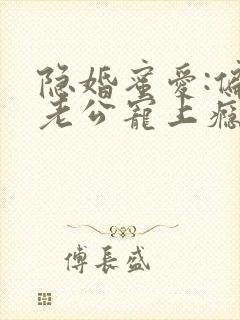 隐婚蜜爱:偏
老公寵上癮
傅長盛